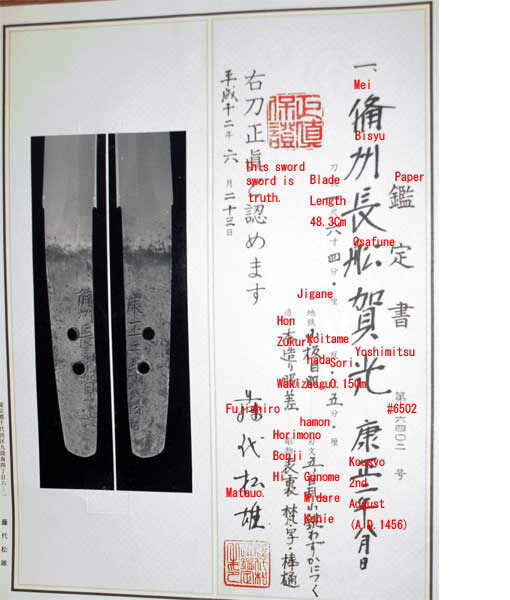 鑑定書
第六四〇二号
一、備州長船賀光 康正二年八月日
尺六寸四分・厘
五分・厘
地鉄 小板目肌
刃文 五ノ目乱小錵わずかにつく
本造り脇差
彫物 表裏 梵字・棒樋
保證
右刀正眞と認めます
平成十二年六月二十三日
藤代松雄
藤代松雄
Mei
Bisyu
this sword
sword is
truth.
Blade
Length
48.3Cm
Paper
Osafune
Jigane
Hon
Zukuri
Koitame
hada
Sori
0.15Cm
Yoshimitsu
Wakizashi
Fujishiro
#6502
hamon
Horimono
Bonji
Hi
Gunome
Midare
Konie
Matsuo.
Kousyo
2nd
August
(A.D.1456)